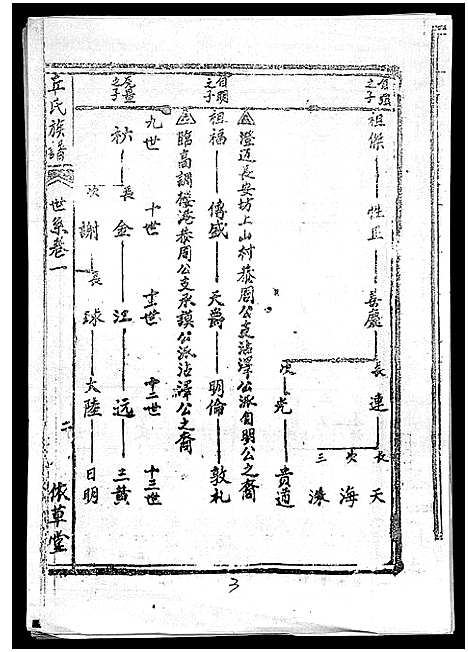 祖傑 性直 善慶 長 連 長 天
次 海
三 洙
次 光 貴道
澄迈長安坊上山村恭周公支沾澤公派自明公之裔
自明之子
祖福 傳盛 天爵 明倫 敦礼
臨高調楼港恭周公支承謨公派沾澤公之裔
九世 十世 十一世 十二世 十三世
之子
長 金 江 远 三黄
次 謝 長 球 大陸 日明
丘氏族譜 世系卷一 二 依草堂
3